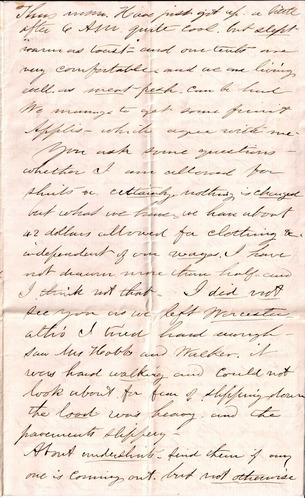 Thurs morn. Have just got up a little
after 6 A.M. quite cool. but slept
warm as toast - and our tents are
very comfortable and we are living
well. as meat-fresh can be had
We manage to get some fruit
Apples - which agree with me
You ask some questions -
whether I am allowed for
shirts &c certainly, nothing is charged
but what we have. we have about
42 dollars allowed for clothing &c
independent of our wages. I have
not drawn more than half. and
I think not that - I did not
see you as we left Worcester
altho I tried hard enough -
saw Mrs Hobbs and Walker. it
was hard walking and could not
look about for fear of slipping down
the load was heavy. and the
pavements slippery -
About undershirts - send them if any
one is coming out. but not otherwise